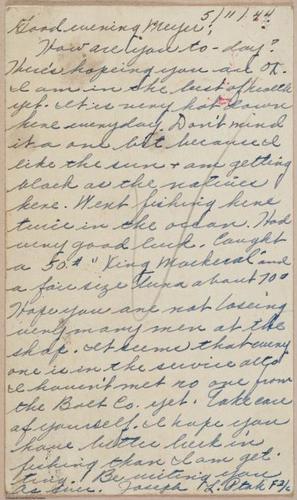 5/11/44
Good evening Meyer!
How are you to-day?
Here's hoping you are OK.
I am in the best of health
yet. It is very hot down
here everyday. Don't mind
it a one bit because I
like the sun + am getting
black as the natives
here. Went fishing here
twice in the ocean. Had
very good luck. Caught
a 50# "King Mackeral" and
a fair size Tuna about 70#
Hope you are not loseing
very many men at the
shop. It seems that every
one is in the service alto
I haven't met no one from
the Bolt Co. yet. Take care
of yourself. I hope you
have better luck in
fishing than I am get-
ting. I'll be writing you
as ever. Joseph L. Ptak F3/c